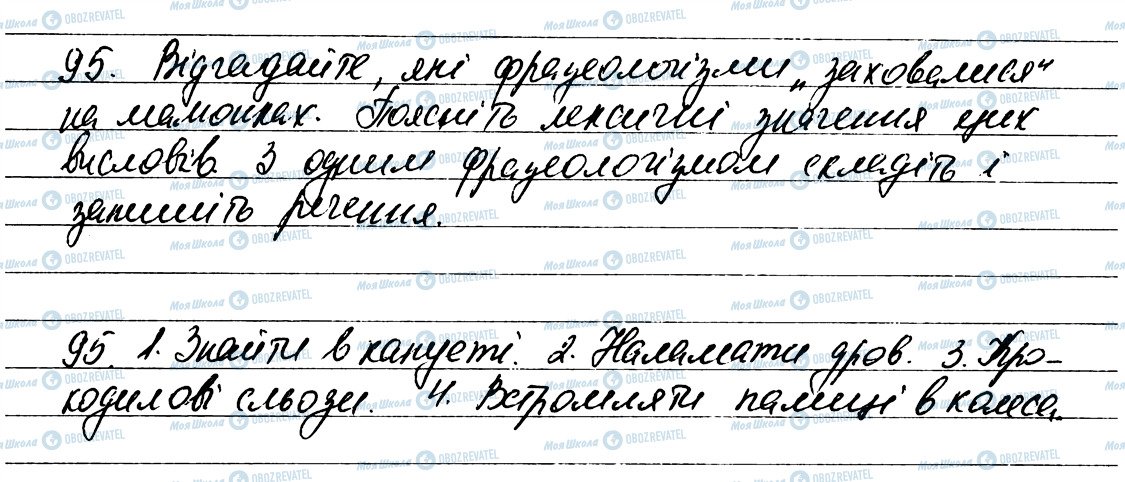 95. Відгадайте, які фразеологізми „заховалися"
на малюнках. Поясніть лексичні значення цих
висловів. З одним фразеологізмом складіть і
запишіть речення.
95 1. Знайти в капусті. 2. Наламати дров. 3. Кро-
кодилові сльози. 4. Встромляти палиці в колеса.